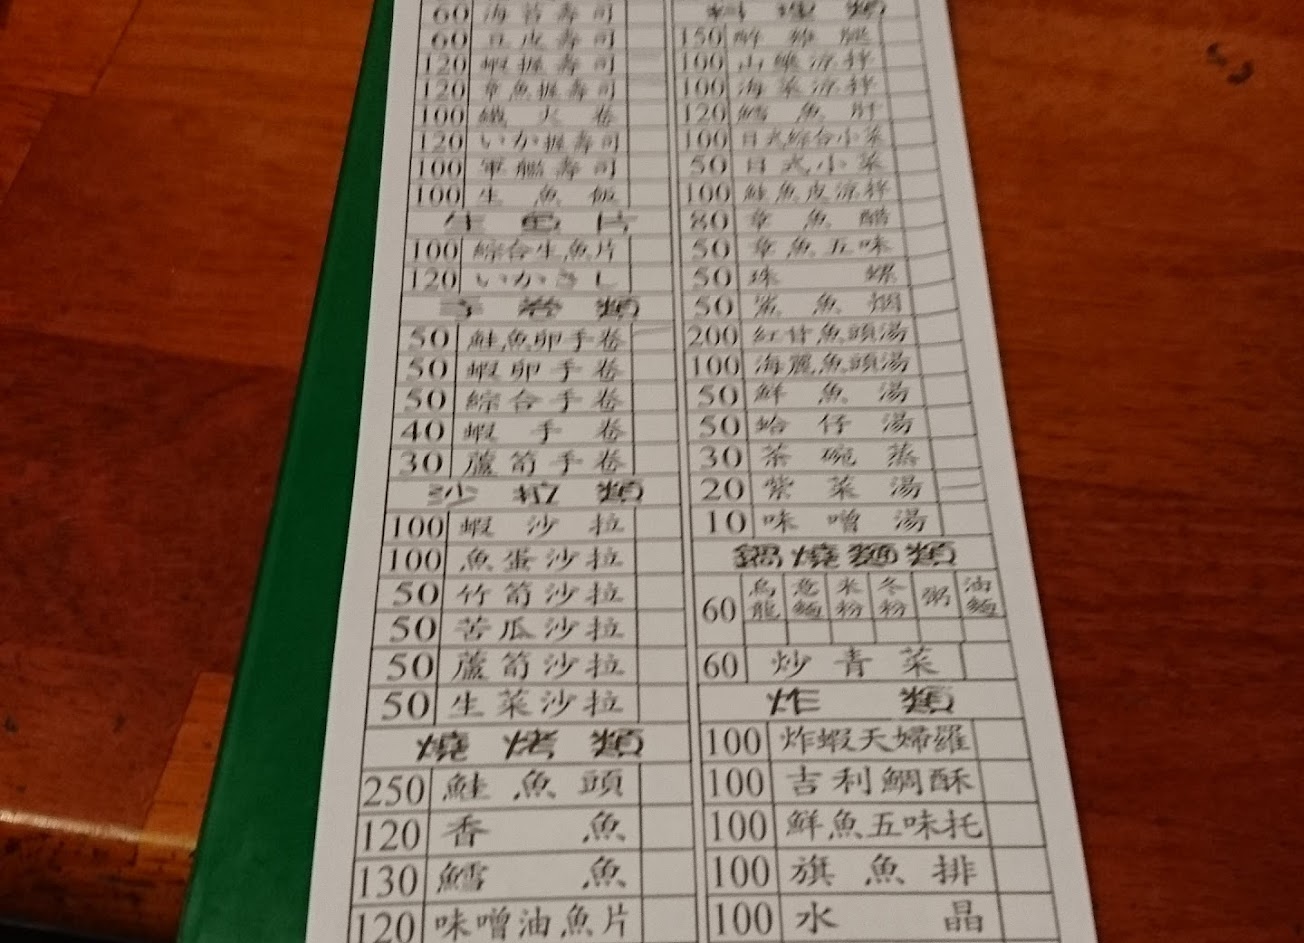 60 海苔壽司
60 豆皮壽司
120 蝦握壽司
120 章魚握壽司
100 鐵火卷
120 いか握壽司
100 軍艦壽司
100 生魚飯
生魚片
100 綜合生魚片
120 いかさし
手卷類
50 鮭魚卵手卷
50 蝦卵手卷
50 綜合手卷
40 蝦手卷
30 蘆筍手卷
沙拉類
100 蝦沙拉
100 魚蛋沙拉
50 竹筍沙拉
50 苦瓜沙拉
50 蘆筍沙拉
50 生菜沙拉
燒烤類
250 鮭魚頭
120 香魚
130 鱈魚
120 味噌油魚片
料理類
150 醉雞腿
100 山藥涼拌
100 海菜涼拌
120 鱈魚肝
100 日式綜合小菜
50 日式小菜
100 鮭魚皮涼拌
80 章魚醋
50 章魚五味
50 珠螺
50 鯊魚烟
200 紅甘魚頭湯
100 海麗魚頭湯
50 鮮魚湯
50 蛤仔湯
30 茶碗蒸
20 紫菜湯
10 味噌湯
鍋燒麵類
60 烏龍 意麵 米粉 冬粉 粥 油麵
60 炒青菜
炸類
100 炸蝦天婦羅
100 吉利鯛酥
100 鮮魚五味托
100 旗魚排
100 水晶